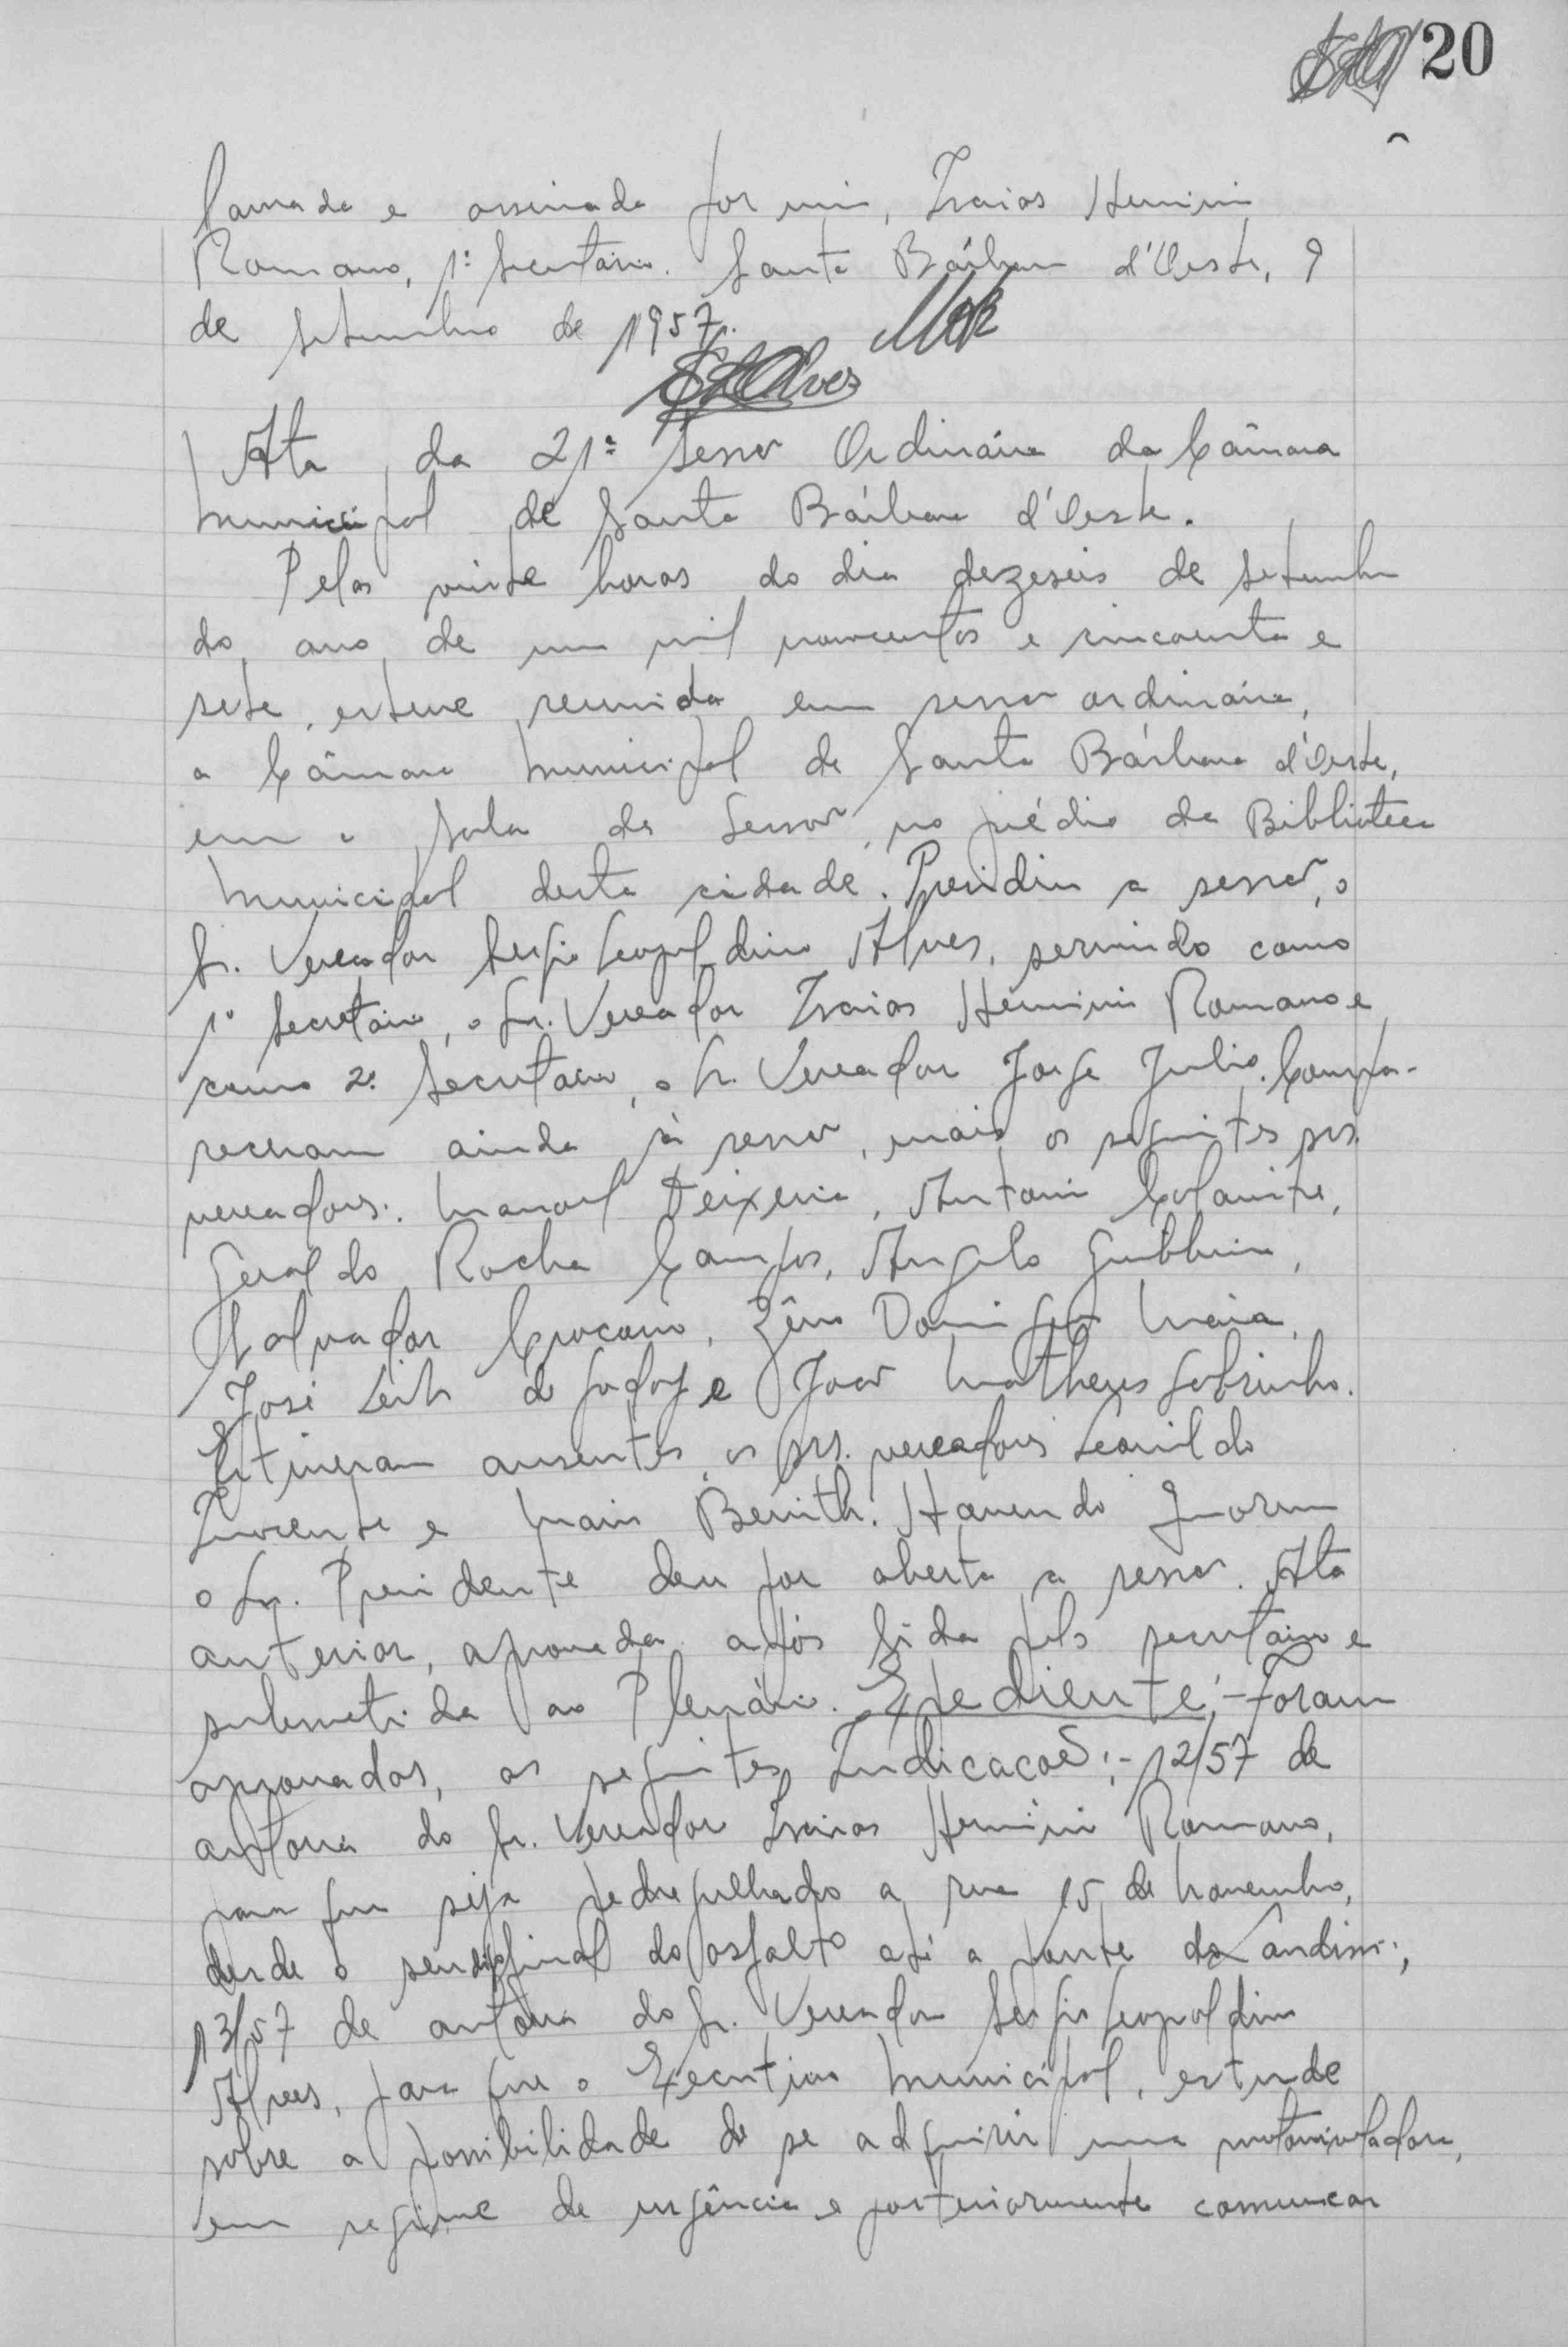 20
lavrada e assinada por mim, Isaias Herminio
Romano, 1º Secretário. Santa Bárbara d'Oeste, 9
de setembro de 1957.
SLAlves
Ata da 21ª sessão Ordinária da Câmara
Municipal de Santa Bárbara d'Oeste.
Pelas vinte horas do dia dezeseis de setembro
do ano de um mil novecentos e cincoenta e
sete, esteve reunida em sessão ordinária,
a Câmara Municipal de Santa Bárbara d'Oeste,
em a sala de Sessão, no prédio da Biblioteca
Municipal desta cidade. Presidiu a sessão, o
Sr. Vereador Sergio Leopoldino Alves, servindo como
1º Secretário, o Sr. Vereador Isaias Herminio Romano e
como 2º Secretario, o Sr. Vereador Jorge Julio. Compa-
receram ainda à sessão, mais os seguintes srs.
vereadores: Manoel Teixeira, Antonio
Geraldo Rocha Campos, Angelo Giubbina,
Salvador Crocomo, Zêno Domingos Maia,
José Leite de Godoy e João Matheus Sobrinho.
Estiveram ausentes, os srs. vereadores Leonildo
e Benith. Havendo quorum
o Sr. Presidente deu por aberta a sessão. Ata
anterior, aprovada após lida pelo secretário e
submetida ao Plenário. Expediente:- Foram
aprovadas, as seguintes Indicacaoẽ:- 12/57 de
autoria do Sr. Vereador Isaias Herminio Romano,
para que seja pedregulhado a rua 15 de Novembro,
desde o final do asfalto até a ponte do Landissi;
13/57 de autoria do Sr. Vereador Sergio Leopoldino
Alves, para que o Executivo Municipal, estude
sobre a possibilidade de se adquirir uma motoniveladora,
em regime de urgência e posteriormente comunicar